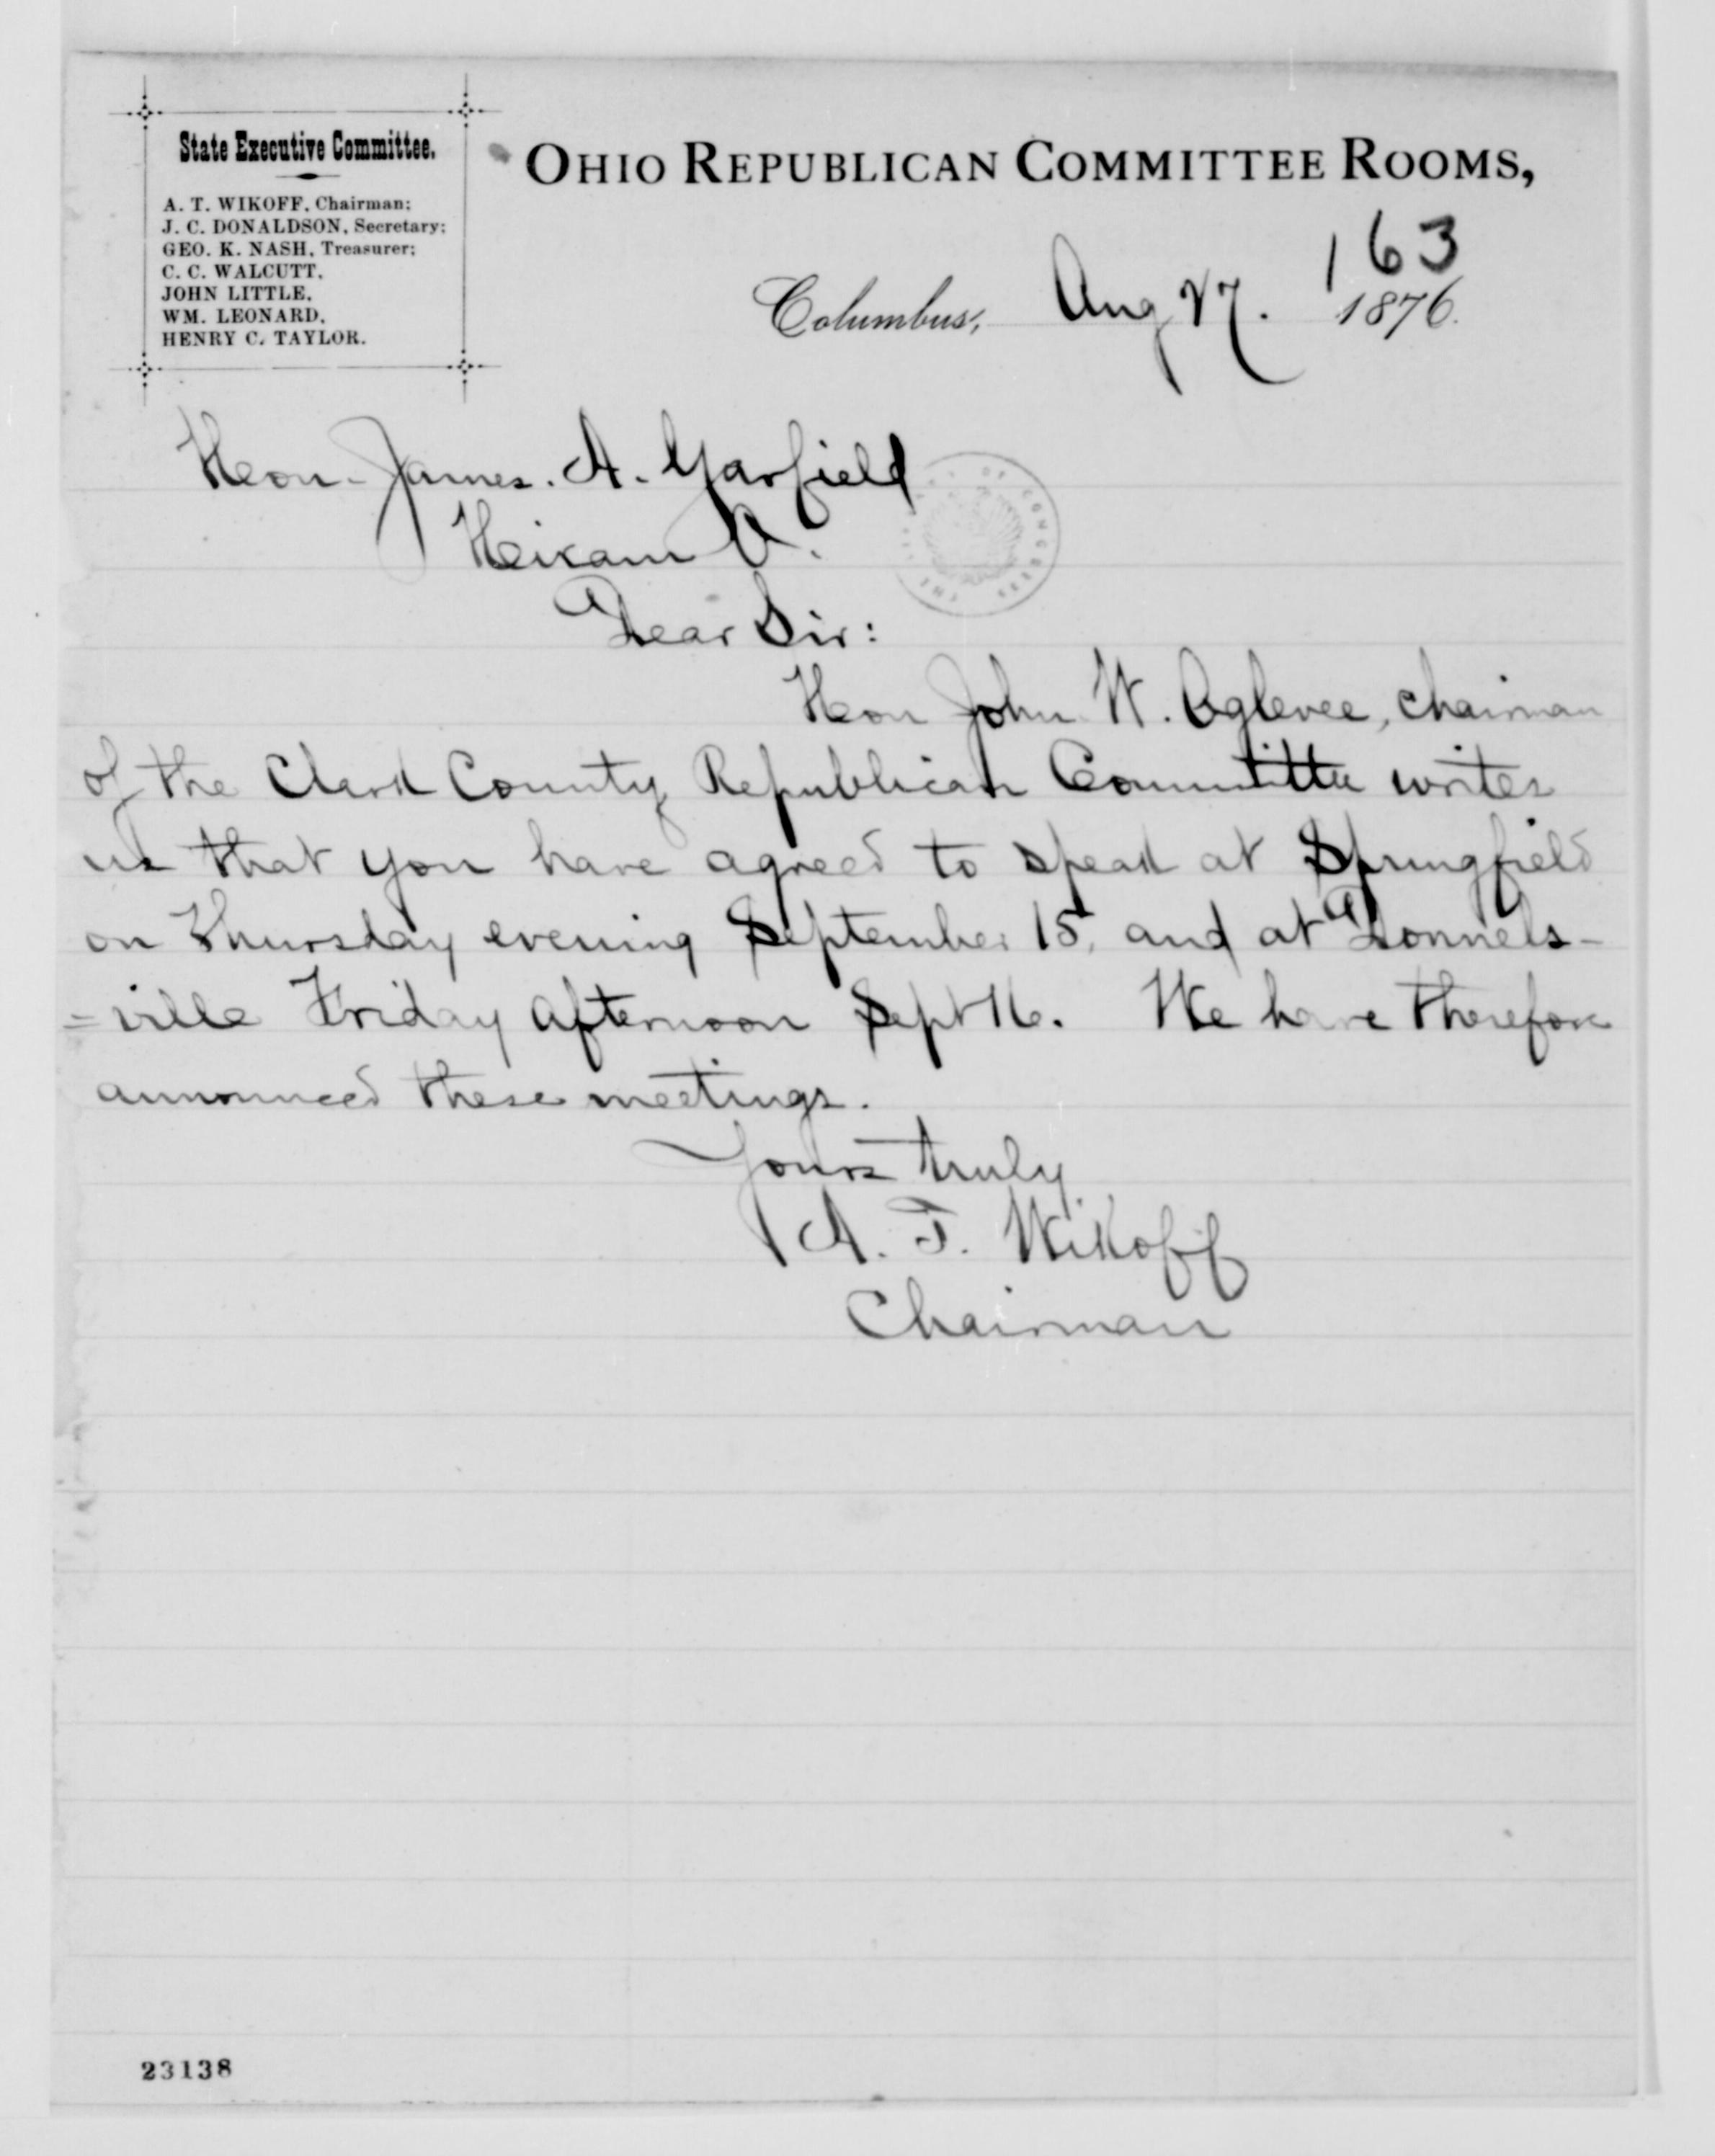 State Executive Committee.
A. T. WIKOFF, Chairman;
J. C. DONALDSON, Secretary;
GEO. K. NASH, Treasurer;
C. C. WALCUTT,
JOHN LITTLE,
WM. LEONARD,
HENRY C. TAYLOR.
OHIO REPUBLICAN COMMITTEE ROOMS,
163
Columbus, Aug 27. 1876.
Hon. James. A. Garfield
Hiram O.
Dear Sir:
Hon John W. Oglevee, chairman
of the Clark County Republican Committee writes
us that you have agreed to speak at Springfield
on Thursday evening September 15, and at Donnels-
=ville Friday afternoon Sept 16. We have therefore
announced these meetings.
Yours truly
A. T. Wikoff
Chairman
23138